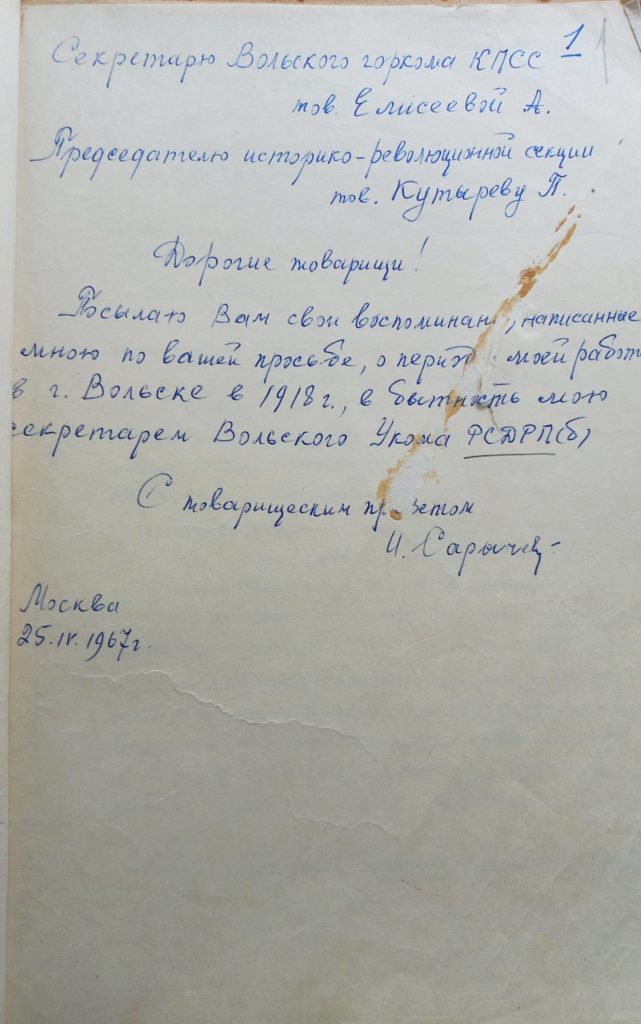 Секретарю Вольского горкома КПСС 1 1
тов. Елисеевой А.
Председателю историко-революционной секции
тов. Кутыреву П.
Дорогие товарищи!
Посылаю Вам свои воспоминан, написанные
мною по вашей просьбе, о период моей работ
в г. Вольске в 1918 г., в бытность мою
секретарем Вольского Укома РСДРП(б)
С товарищеским приветом
И. Сарычев
Москва
25.IV.1967г.